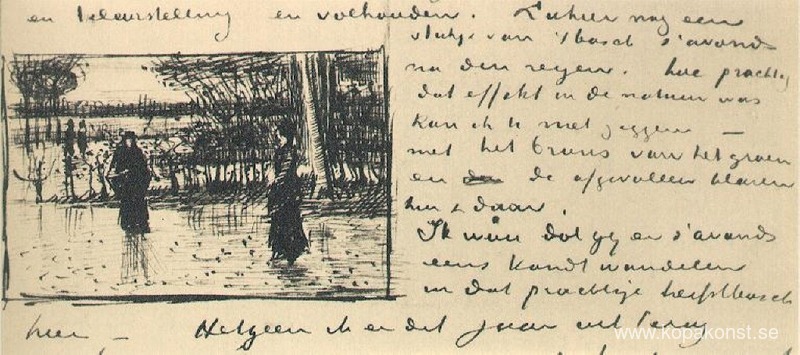 en teleurstelling en volhouden. Ziehier nog een
van 't bosch s'avonds
na den regen. hoe prachtig
dat effekt in de natuur was
kan ik U niet zeggen —
met het brons van het groen
en de afgevallen blaren
hier & daar.
Ik wou dat gij er s'avonds
eens kondt wandelen
in dat prachtige herfstbosch
hier — Hetgeen ik er dit jaar uit terug
www.kopakonst.se